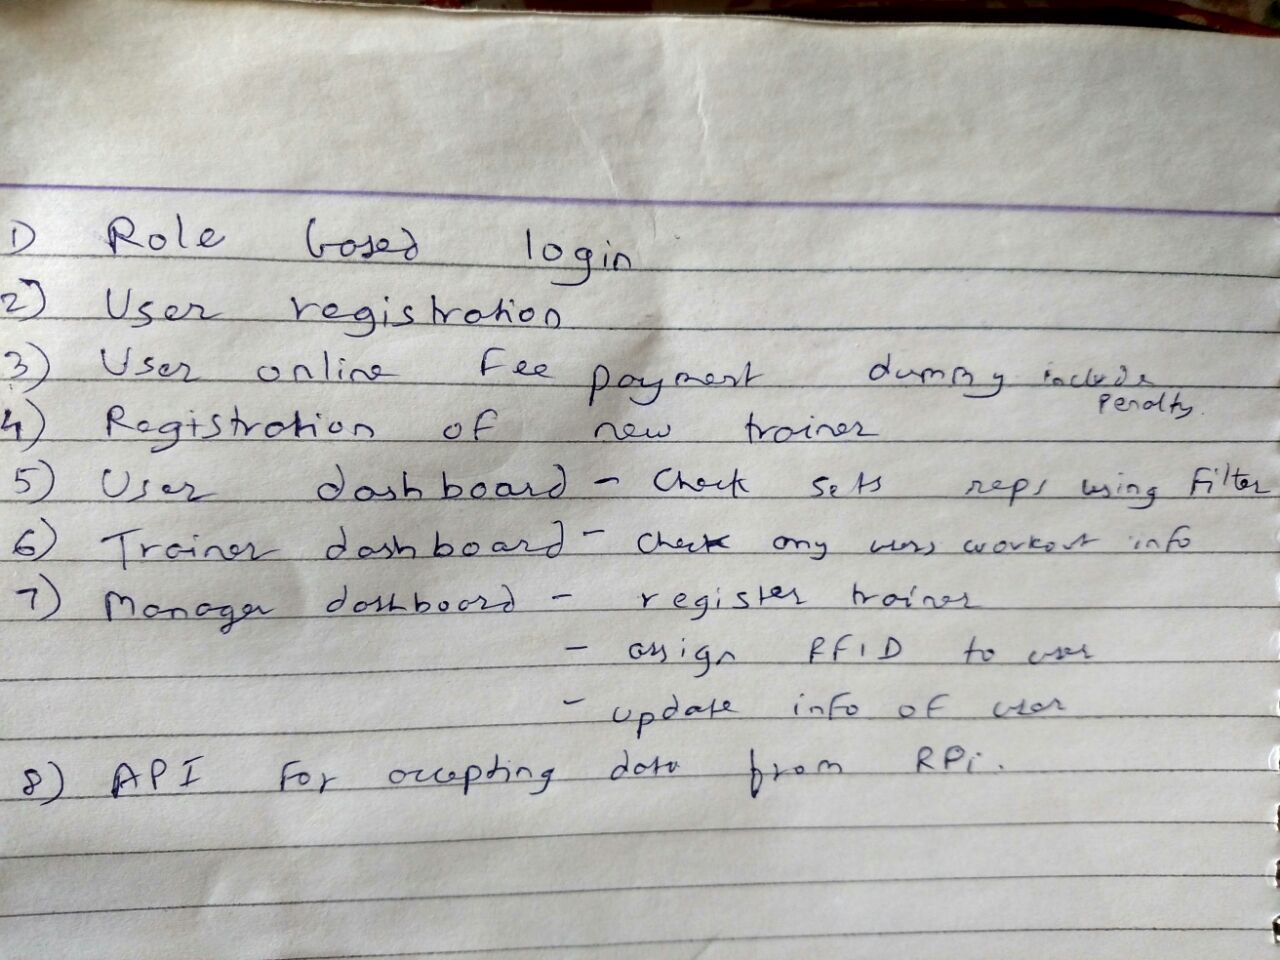 1) Role based login
2) User registration
3) User online fee payment dummy include
penalty.
4) Registration of new trainer
5) User dashboard - Check sets reps using filter
6) Trainer dashboard - check any users workout info
7) Manager dashboard - register trainer
- assign RFID to user
- update info of user
8) API for accepting data from RPi.